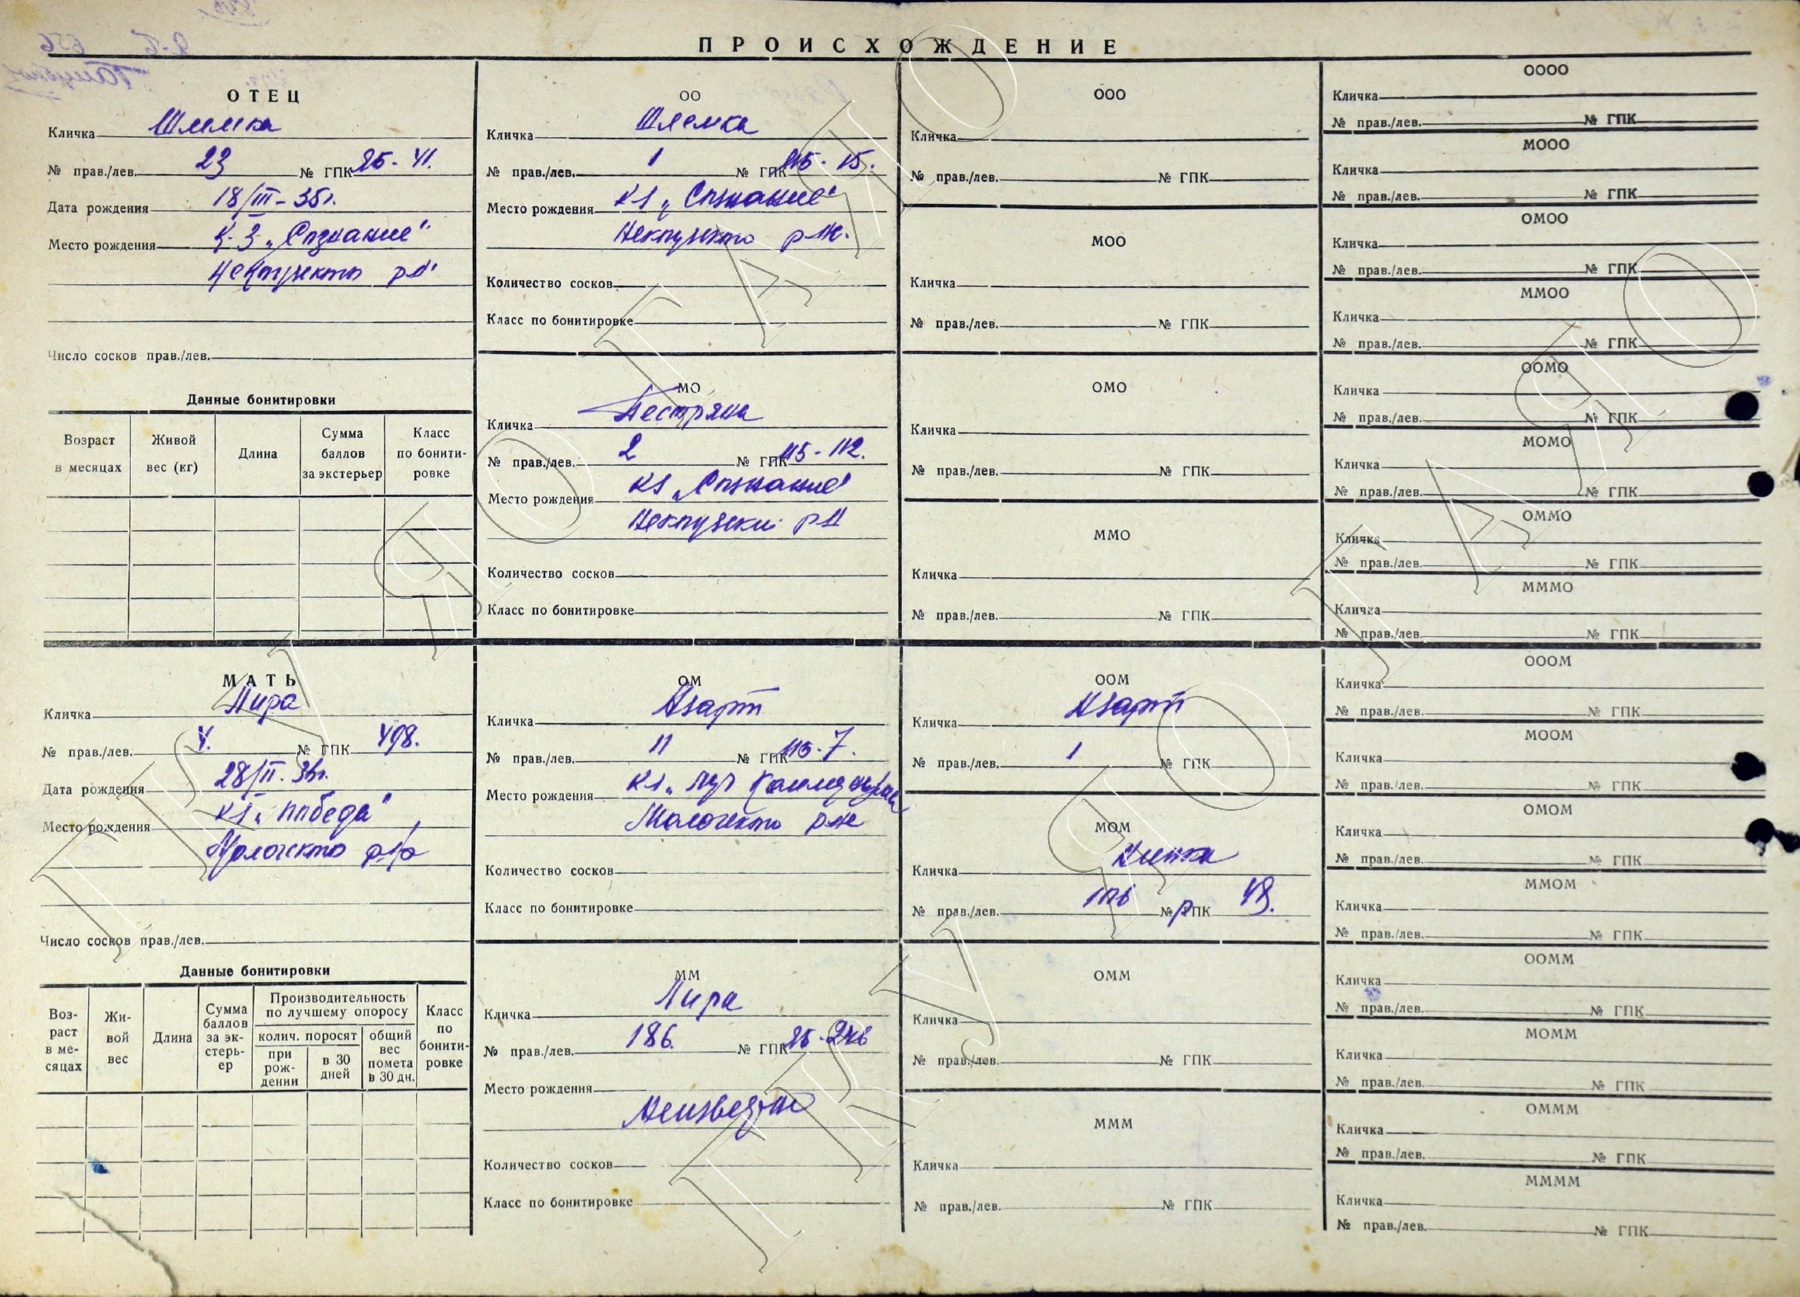 ПРОИСХОЖДЕНИЕ
ОТЕЦ
Кличка Шлемка
№ прав./лев. 23 № ГПК 41.
Дата рождения 18/III-35г.
Место рождения К-З „Сознание"
Некоузского р-н
Число сосков прав./лев.
Данные бонитировки
Возраст в месяцах
Живой вес (кг)
Длина
Сумма баллов за экстерьер
Класс по бонитировке
ОО
Кличка Шлемка
№ прав./лев. 1 № ГПК 15.
Место рождения КЗ „Сознание"
Некоузского р-на.
Количество сосков
Класс по бонитировке
МО
Кличка Пестрянка
№ прав./лев. 2 № ГПК 115-112.
Место рождения КЗ „Сознание"
Некоузский р-н
Количество сосков
Класс по бонитировке
ООО
Кличка
№ прав./лев. № ГПК
МОО
Кличка
№ прав./лев. № ГПК
ОМО
Кличка
№ прав./лев. № ГПК
ММО
Кличка
№ прав./лев. № ГПК
ОООО
Кличка
№ прав./лев. № ГПК
МООО
Кличка
№ прав./лев. № ГПК
ОМОО
Кличка
№ прав./лев. № ГПК
ММОО
Кличка
№ прав./лев. № ГПК
ООМО
Кличка
№ прав./лев. № ГПК
МОМО
Кличка
№ прав./лев. № ГПК
ОММО
Кличка
№ прав./лев. № ГПК
МММО
Кличка
№ прав./лев. № ГПК
МАТЬ
Кличка Лира
№ прав./лев. 4. № ГПК 498.
Дата рождения 28/II-
Место рождения КЗ „Победа"
Мологского р-на
Число сосков прав./лев.
Данные бонитировки
Возраст в месяцах
Живой вес
Длина
Сумма баллов за экстерьер
Производительность по лучшему опоросу
колич. поросят
при рождении
в 30 дней
общий вес помета в 30 дн.
Класс по бонитировке
ОМ
Кличка Азарт
№ прав./лев. 11 № ГПК 115-7.
Место рождения КЗ „
Мологского р-на
Количество сосков
Класс по бонитировке
ММ
Кличка Лира
№ прав./лев. 186. № ГПК
Место рождения
Неизвестно
Количество сосков
Класс по бонитировке
ООМ
Кличка Азарт
№ прав./лев. 1 № ГПК
МОМ
Кличка
№ прав./лев. № ГПК 49.
ОММ
Кличка
№ прав./лев. № ГПК
МММ
Кличка
№ прав./лев. № ГПК
ОООМ
Кличка
№ прав./лев. № ГПК
МООМ
Кличка
№ прав./лев. № ГПК
ОМОМ
Кличка
№ прав./лев. № ГПК
ММОМ
Кличка
№ прав./лев. № ГПК
ООММ
Кличка
№ прав./лев. № ГПК
МОММ
Кличка
№ прав./лев. № ГПК
ОМММ
Кличка
№ прав./лев. № ГПК
ММММ
Кличка
№ прав./лев. № ГПК
ГКУ ЯО ГАЯО
ГКУ ЯО ГАЯО